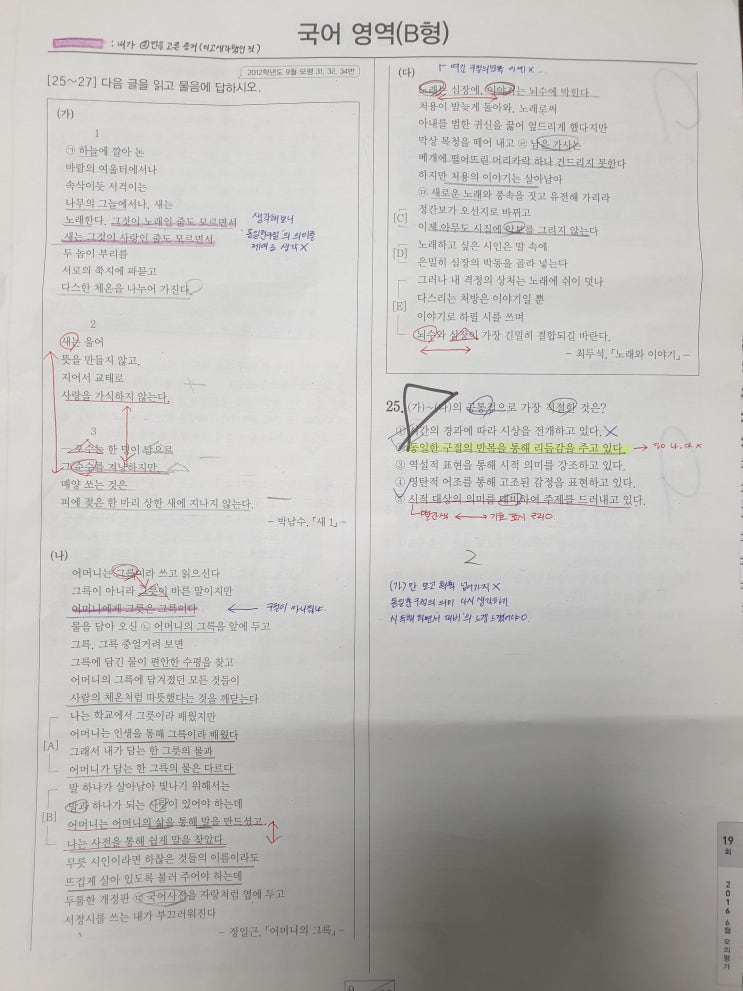 국어 영역(B형)
: 내가 ②번을 고른 증거 (라고생각했던 것)
2012학년도 9월 모평 31, 32, 34번
[25~27] 다음 글을 읽고 물음에 답하시오.
(가)
1
㉠ 하늘에 깔아 논
바람의 여울터에서나
속삭이듯 서걱이는
나무의 그늘에서나, 새는
노래한다. 그것이 노래인 줄도 모르면서
새는 그것이 사랑인 줄도 모르면서
두 놈이 부리를
서로의 쭉지에 파묻고
다스한 체온을 나누어 가진다.
생각해보니
'동일한구절'의 의미를
제대로 생각 X
2
새는 울어
뜻을 만들지 않고,
지어서 교태로
사랑을 가식하지 않는다.
3
─ 포수는 한 덩이 납으로
그 순수를 겨냥하지만,
매양 쏘는 것은
피에 젖은 한 마리 상한 새에 지나지 않는다.
- 박남수, 「새 1」 -
(나)
어머니는 그륵이라 쓰고 읽으신다
그륵이 아니라 그릇이 바른 말이지만
어머니에게 그릇은 그륵이다
구절이 아니잖나..
물을 담아 오신 ㉡ 어머니의 그륵을 앞에 두고
그륵, 그륵 중얼거려 보면
그륵에 담긴 물이 편안한 수평을 찾고
어머니의 그륵에 담겨졌던 모든 것들이
사람의 체온처럼 따뜻했다는 것을 깨닫는다
나는 학교에서 그릇이라 배웠지만
어머니는 인생을 통해 그륵이라 배웠다
[A]
그래서 내가 담는 한 그릇의 물과
어머니가 담는 한 그륵의 물은 다르다
말 하나가 살아남아 빛나기 위해서는
말과 하나가 되는 사랑이 있어야 하는데
[B]
어머니는 어머니의 삶을 통해 말을 만드셨고
나는 사전을 통해 쉽게 말을 찾았다
무릇 시인이라면 하찮은 것들의 이름이라도
뜨겁게 살아 있도록 불러 주어야 하는데
두툼한 개정판 ㉢ 국어사전을 자랑처럼 옆에 두고
서정시를 쓰는 내가 부끄러워진다
- 정일근, 「어머니의 그륵」 -
(다)
노래는 심장에, 이야기는 뇌수에 박힌다
처용이 밤늦게 돌아와, 노래로써
아내를 범한 귀신을 꿇어 엎드리게 했다지만
막상 목청을 떼어 내고 ㉣ 남은 가사는
베개에 떨어뜨린 머리카락 하나 건드리지 못한다
하지만 처용의 이야기는 살아남아
㉤ 새로운 노래와 풍속을 짓고 유전해 가리라
[C]
정간보가 오선지로 바뀌고
이제 아무도 시집에 악보를 그리지 않는다
[D]
노래하고 싶은 시인은 말 속에
은밀히 심장의 박동을 골라 넣는다
[E]
그러나 내 격정의 상처는 노래에 쉬이 덧나
다스리는 처방은 이야기일 뿐
이야기로 하필 시를 쓰며
뇌수와 심장이 가장 긴밀히 결합되길 바란다.
- 최두석, 「노래와 이야기」 -
25. (가)~(다)의 공통점으로 가장 적절한 것은?
① 시간의 경과에 따라 시상을 전개하고 있다. X
② 동일한 구절의 반복을 통해 리듬감을 주고 있다.
③ 역설적 표현을 통해 시적 의미를 강조하고 있다.
④ 영탄적 어조를 통해 고조된 감정을 표현하고 있다.
⑤ 시적 대상의 의미를 대비하여 주제를 드러내고 있다.
2
(가)만 보고 휙휙 넘어가지 X
동일한구절의 의미 다시 생각하기
19
회
2016 6월 모의평가
9